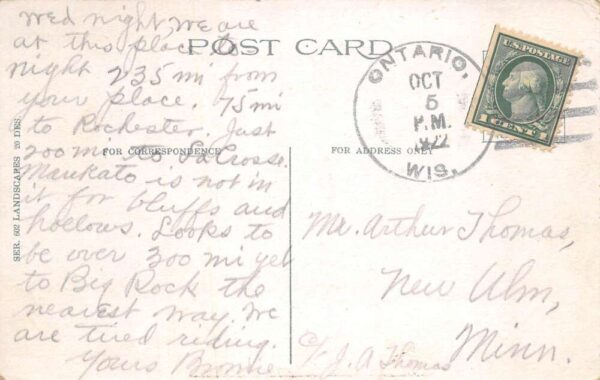 Wed night, We are
at this place to
POST CARD
night 235 mi from
your place. 75 mi
to Rochester. Just
200 mi to LaCrosse.
FOR CORRESPONDENCE
Mankato is not in
it for bluffs and
hoelows. Looks to
be over 300 mi yet
to Big Rock the
nearest way. We
are tired riding.
Yours Bronie
SER. 602 LANDSCAPES 20 DES.
ONTARIO,
OCT
5
P.M.
WIS.
U.S. POSTAGE
1 CENT 1
FOR ADDRESS ONLY
Mr. Arthur Thomas,
New Ulm,
Minn.
c/o J. A Thomas